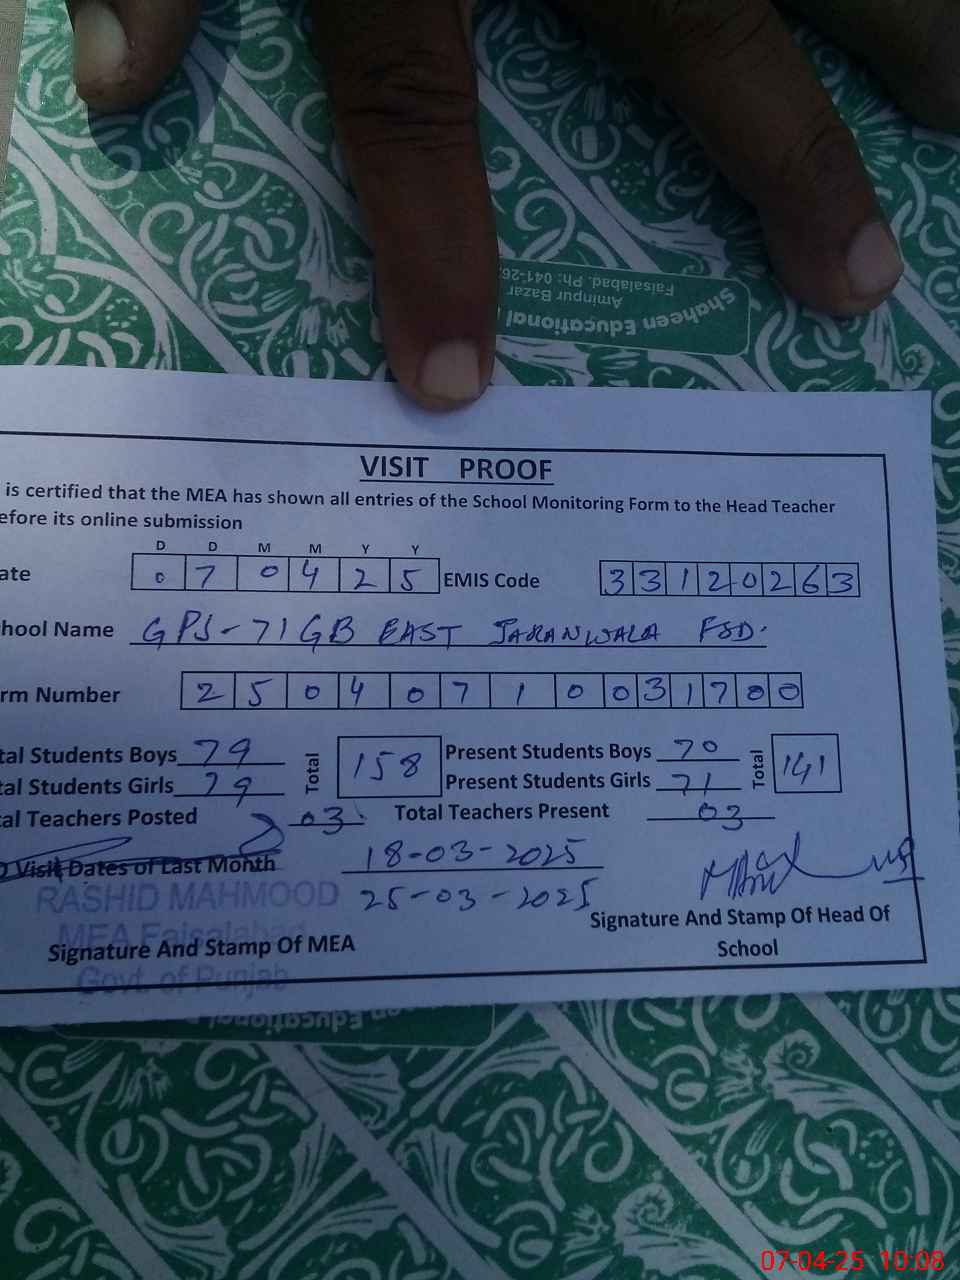 Shaheen Educational
Aminpur Bazar
Faisalabad. Ph: 041-26
VISIT PROOF
is certified that the MEA has shown all entries of the School Monitoring Form to the Head Teacher
efore its online submission
D D M M Y Y
ate 0 7 0 4 2 5 EMIS Code 3 3 1 2 0 2 6 3
hool Name GPS-71 GB EAST JARANWALA FSD.
rm Number 2 5 0 4 0 7 1 0 0 3 1 7 0 0
tal Students Boys 79 Total 158 Present Students Boys 70 Total 141
tal Students Girls 79 Present Students Girls 71
al Teachers Posted 03 Total Teachers Present 03
O Visit Dates of Last Month 18-03-2025
25-03-2025
RASHID MAHMOOD
MEA Faisalabad
Govt. of Punjab
Signature And Stamp Of MEA
Signature And Stamp Of Head Of
School
Educational
07-04-25 10:08